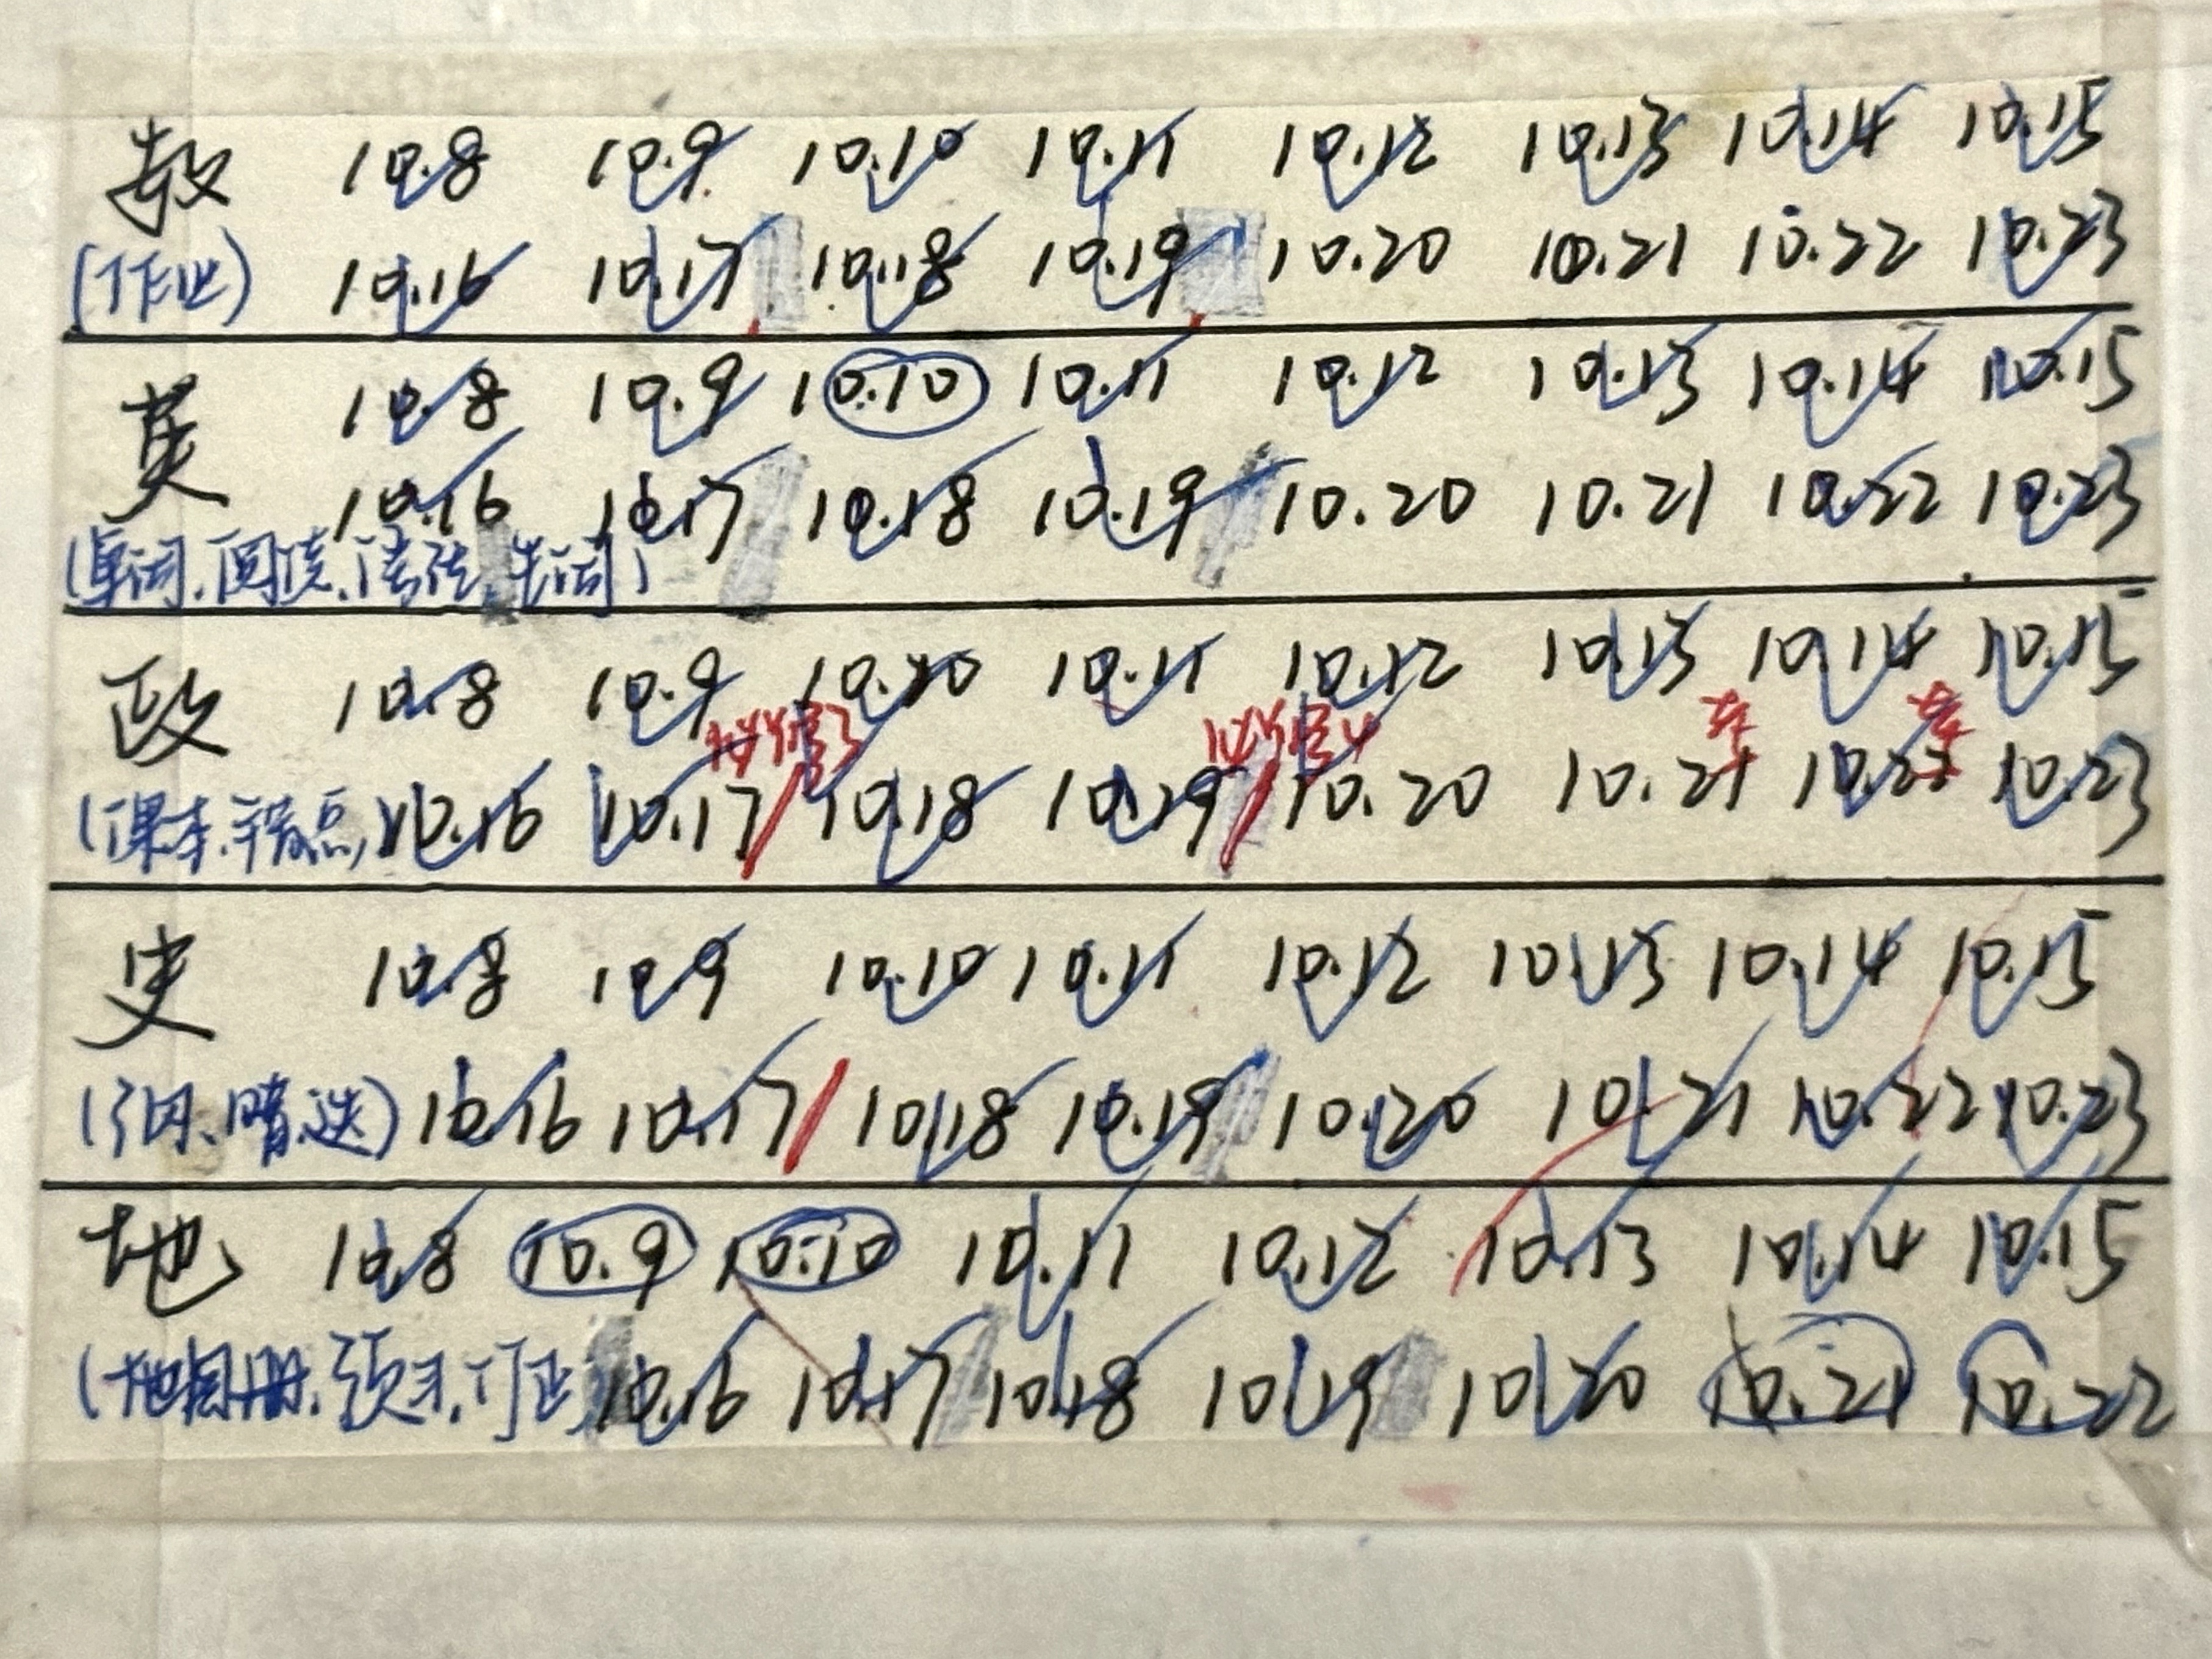 数 10.8 10.9 10.10 10.11 10.12 10.13 10.14 10.15
(作业) 10.16 10.17 10.18 10.19 10.20 10.21 10.22 10.23
英 10.8 10.9 10.10 10.11 10.12 10.13 10.14 10.15
10.16 10.17 10.18 10.19 10.20 10.21 10.22 10.23
(单词.阅读.语法.)
政 10.8 10.9 10.10 10.11 10.12 10.13 10.14 10.15
必修3 必修4
(课本.) 10.16 10.17 10.18 10.19 10.20 10.21 10.22 10.23
史 10.8 10.9 10.10 10.11 10.12 10.13 10.14 10.15
10.16 10.17 10.18 10.19 10.20 10.21 10.22 10.23
地 10.8 10.9 10.10 10.11 10.12 10.13 10.14 10.15
(地图册.预习.) 10.16 10.17 10.18 10.19 10.20 10.21 10.22